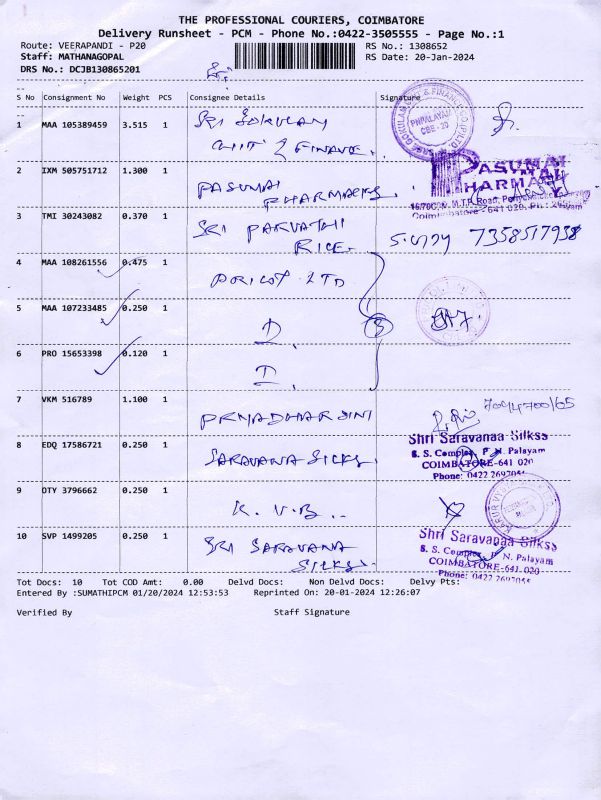 THE PROFESSIONAL COURIERS, COIMBATORE
Delivery Runsheet - PCM - Phone No.:0422-3505555 - Page No.:1
Route: VEERAPANDI - P20 RS No.: 1308652
Staff: MATHANAGOPAL RS Date: 20-Jan-2024
DRS No.: DCJB130865201
S No Consignment No Weight PCS Consignee Details Signature
1 MAA 105389459 3.515 1 SRI GOKULAM
CHIT & FINANCE.
2 IXM 505751712 1.300 1 PASUMAI
PHARMACYS.
PASUMAI
PHARMA
3 TMI 30243082 0.370 1 SRI PARVATHI
RICE. 7358517938
4 MAA 108261556 0.475 1 DORICOT LTD
5 MAA 107233485 0.250 1 D. 3
6 PRO 15653398 0.120 1 D.
7 VKM 516789 1.100 1 PRIYADHARSINI
8 EDQ 17586721 0.250 1 SARAVANA SILKS.
Shri Saravanaa Silkss
S. S. Complex, P. N. Palayam
COIMBATORE-641 020
Phone: 0422 2697055
9 DTY 3796662 0.250 1 K. V. B.
10 SVP 1499205 0.250 1 SRI SARAVANA
SILKS.
Shri Saravanaa Silkss
S. S. Complex, P. N. Palayam
COIMBATORE-641 020
Phone: 0422 2697055
Tot Docs: 10 Tot COD Amt: 0.00 Delvd Docs: Non Delvd Docs: Delvy Pts:
Entered By :SUMATHIPCM 01/20/2024 12:53:53 Reprinted On: 20-01-2024 12:26:07
Verified By Staff Signature